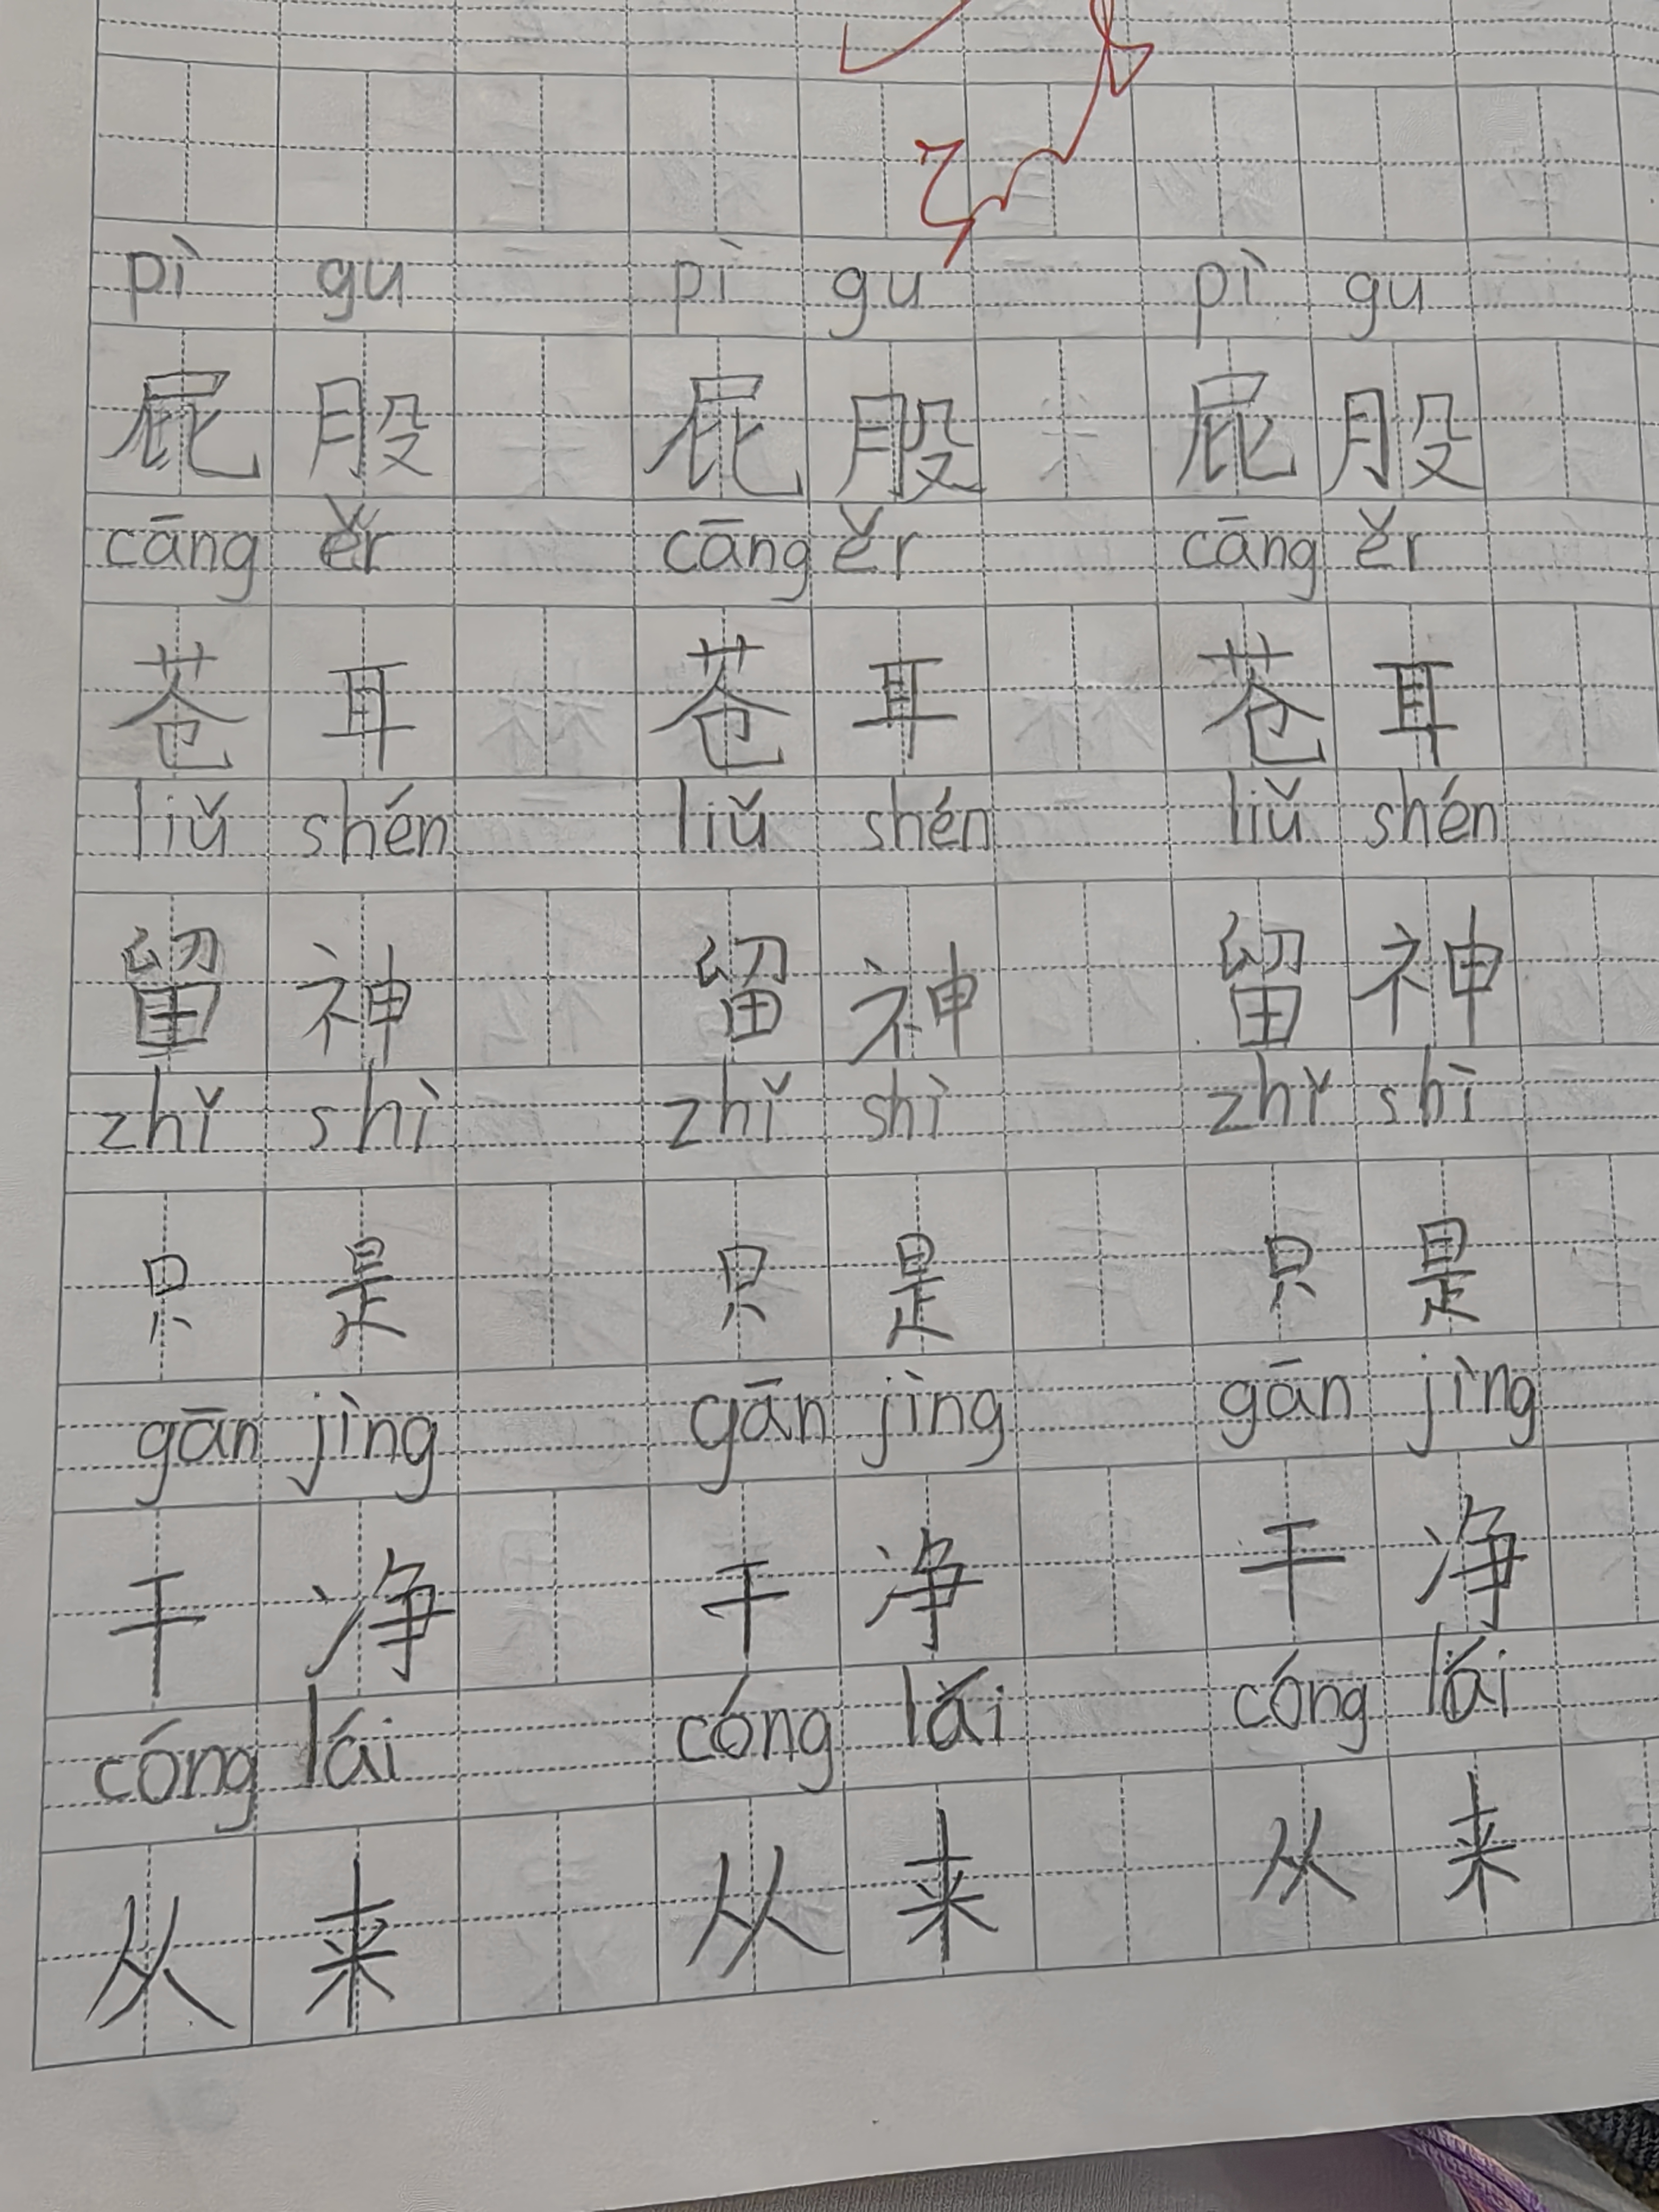 pì gu pì gu pì gu
屁股 屁股 屁股
cāng ěr cāng ěr cāng ěr
苍耳 苍耳 苍耳
liǔ shén liǔ shén liǔ shén
留神 留神 留神
zhǐ shì zhǐ shì zhǐ shì
只是 只是 只是
gān jìng gān jìng gān jìng
干净 干净 干净
cóng lái cóng lái cóng lái
从来 从来 从来